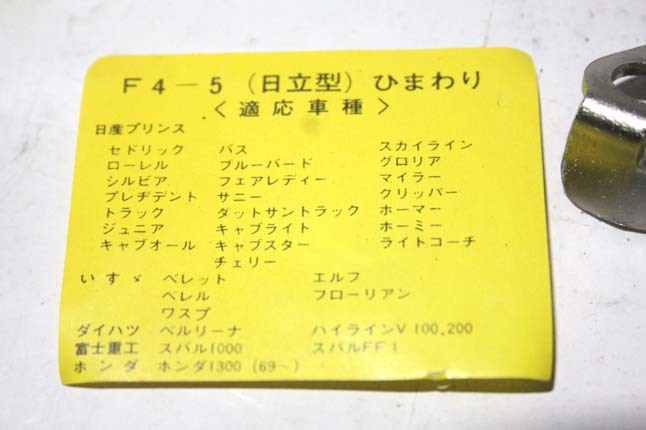 F4－5（日立型）ひまわり
＜適応車種＞
日産プリンス
セドリック　バス　スカイライン
ローレル　ブルーバード　グロリア
シルビア　フェアレディー　マイラー
プレヂデント　サニー　クリッパー
トラック　ダットサントラック　ホーマー
ジュニア　キャブライト　ホーミー
キャブオール　キャブスター　ライトコーチ
チェリー
いすゞ　ベレット　エルフ
ベレル　フローリアン
ワスプ
ダイハツ　ベルリーナ　ハイラインV 100,200
富士重工　スバル1000　スバルFF1
ホンダ　ホンダ1300（69～）